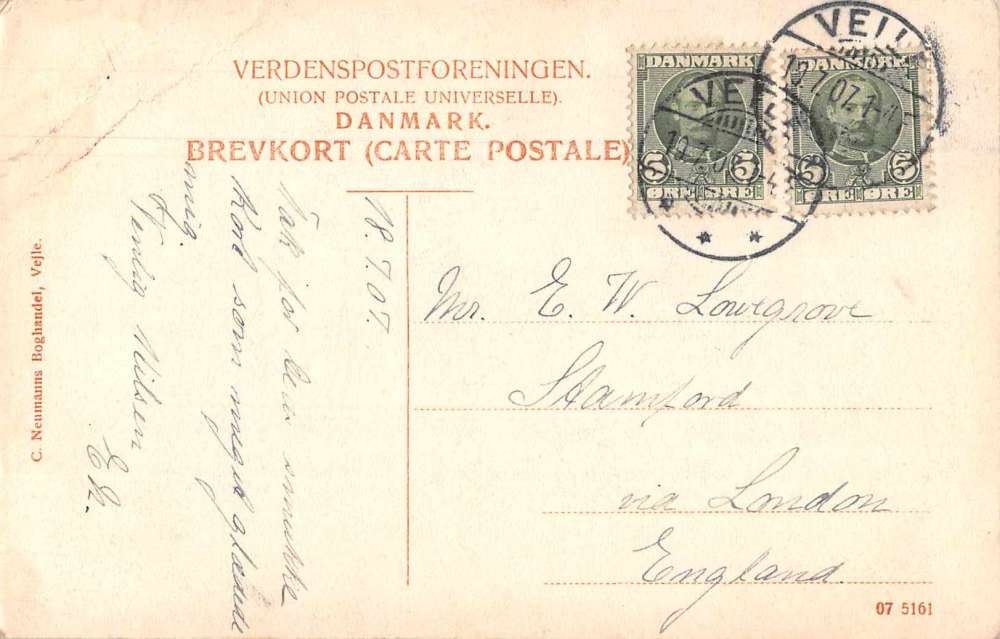 VERDENSPOSTFORENINGEN.
(UNION POSTALE UNIVERSELLE).
DANMARK.
BREVKORT (CARTE POSTALE)
DANMARK
5 5
ØRE ØRE
VEJLE
19.7.07.
DANMARK
5 5
ØRE ØRE
VEJLE
19.7.07.
18.7.07.
Tak for smukke
Kort som meget glædede
mig.
Venlig Hilsen
Mr. E. W. Lovegrove
Stamford
via London
England.
C. Neumanns Boghandel, Vejle.
07 5161